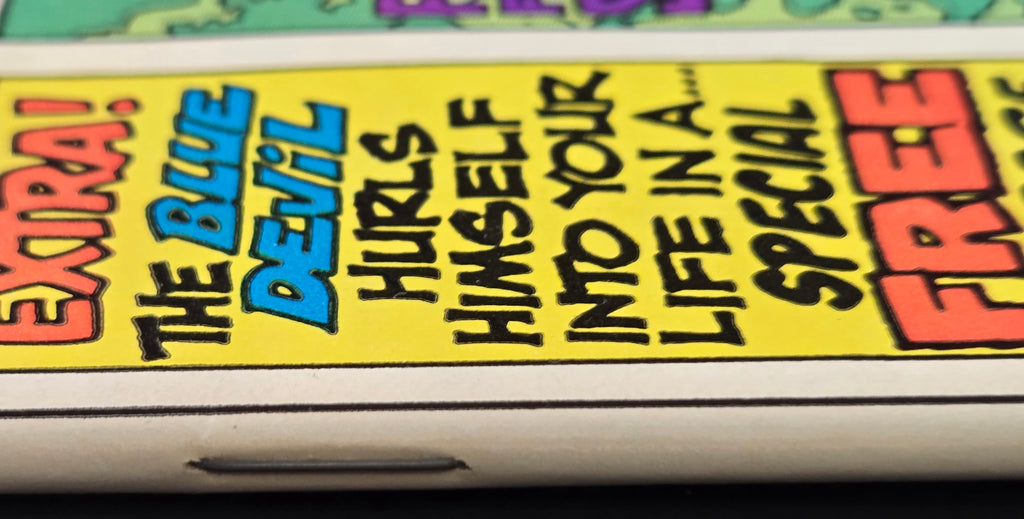 EXTRA!
THE BLUE
DEVIL
HURLS
HIMSELF
INTO YOUR
LIFE IN A...
SPECIAL
FREE